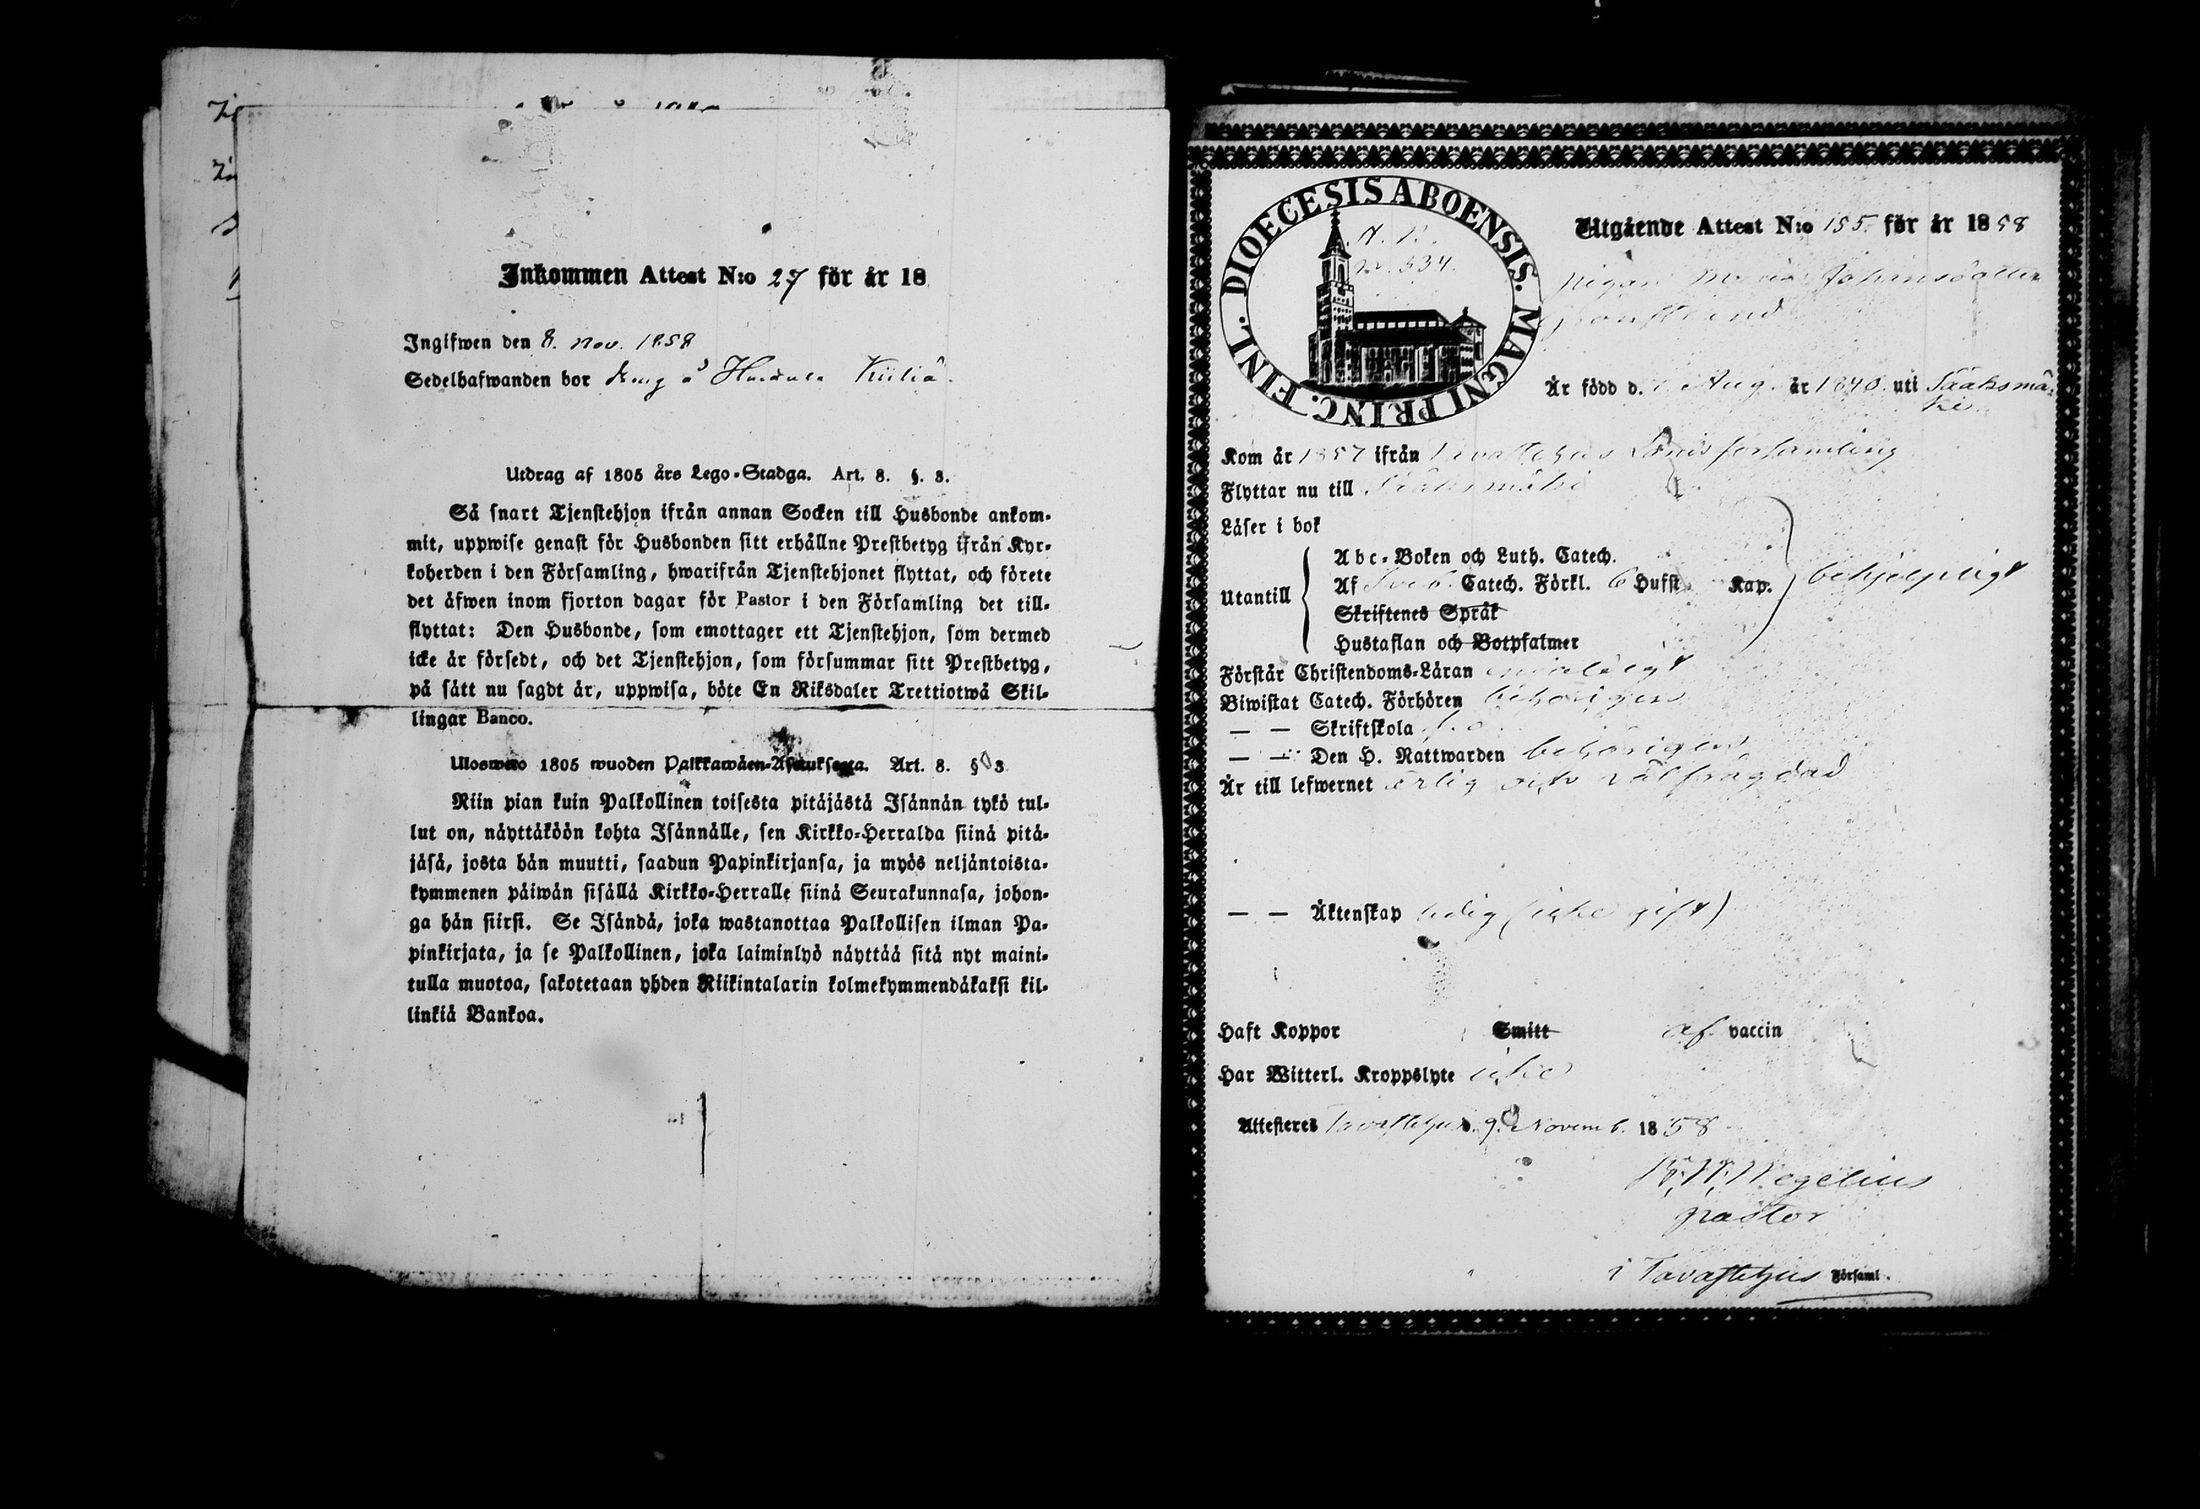 Inkommen Attest N:o 27 för år 18
Ingifwen den 8. nov. 1858
Sedelhafwanden bor å
Utdrag af 1805 års Lego-Stadga. Art. 8. §. 3.
Så snart Tjenstehjon ifrån annan Socken till Husbonde ankom-
mit, uppwise genast för Husbonden sitt erhållne Prestbetyg ifrån Kyr-
koherden i den Församling, hwarifrån Tjenstehjonet flyttat, och förete
det äfwen inom fjorton dagar för Pastor i den Församling det till-
flyttat: Den Husbonde, som emottager ett Tjenstehjon, som dermed
icke är försedt, och det Tjenstehjon, som försummar sitt Prestbetyg,
på sätt nu sagdt är, uppwisa, böte En Riksdaler Trettiotwå Skil-
lingar Banco.
Uloswето 1805 wuoden Palkkawäen-Asetuksesta. Art. 8. § 3
Niin pian kuin Palkollinen toisesta pitäjästä Isännän tykö tul-
lut on, näyttäköön kohta Isännälle, sen Kirkko-Herralda siinä pitä-
jäsä, josta hän muutti, saadun Papinkirjansa, ja myös neljäntoista-
kymmenen päiwän sisällä Kirkko-Herralle siinä Seurakunnasa, johon-
ga hän siirsi. Se Isändä, joka wastanottaa Palkollisen ilman Pa-
pinkirjata, ja se Palkollinen, joka laiminlyö näyttää sitä nyt maini-
tulla muotoa, sakotetaan yhden Riikintalarin kolmekymmendäkaksi kil-
linkiä Bankoa.
DIOECESIS ABOENSIS. MAGNI PRINC. FINL.
534.
Utgående Attest N:o 155. för år 1858
Pigan Maria Johansdotter
Är född d. Aug. år 1840. uti Sääksmä-
ki
Kom år 1857 ifrån Tavastehus församling
Flyttar nu till Sääksmäki
Läser i bok
Abc-Boken och Luth. Catech.
Utantill Af Catech. Förkl. 6 Hufst Kap. behjelpligt
Skriftenes Språk
Hustaflan och Botpsalmer
Förstår Christendoms-Läran enfaldigt
Biwistat Catech. Förhören behörigen
— — Skriftskola
— — Den H. Nattwarden behörigen
Är till lefwernet ärlig och välfrägdad
— — Äktenskap ledig (icke gift)
Haft Koppor Smitt af vaccin
Har Witterl. Kroppslyte icke
Attesteres Tavastehus. 9. Novemb. 1858
Wegelius
pastor
i Tavastehus Församl.